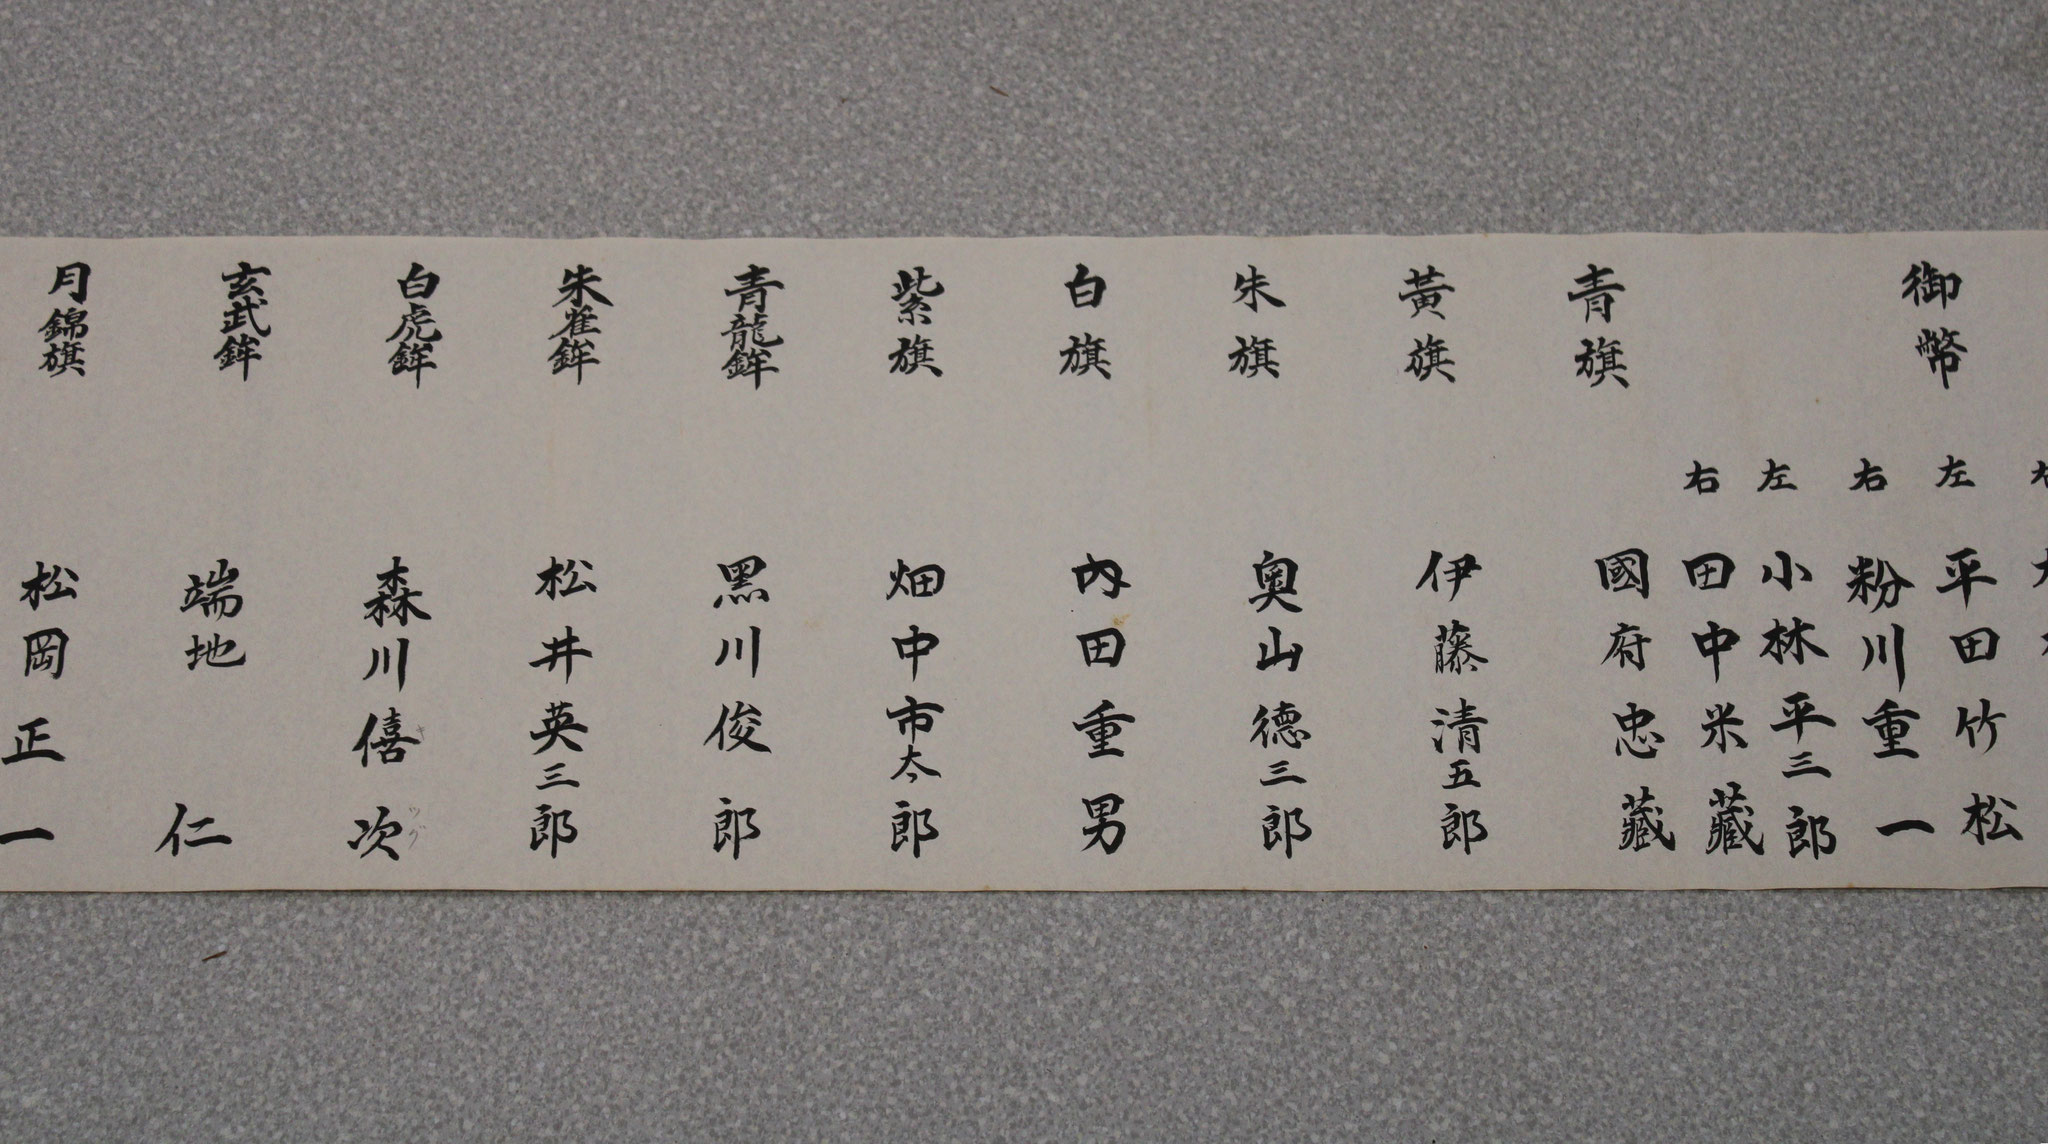 御幣
左 平田竹松
右 粉川重一
左 小林平三郎
右 田中米藏
青旗 國府忠藏
黃旗 伊藤清五郎
朱旗 奥山德三郎
白旗 内田重男
紫旗 畑中市太郎
青龍鉾 黑川俊郎
朱雀鉾 松井英三郎
白虎鉾 森川僖次
キ ツグ
玄武鉾 端地仁
月錦旗 松岡正一